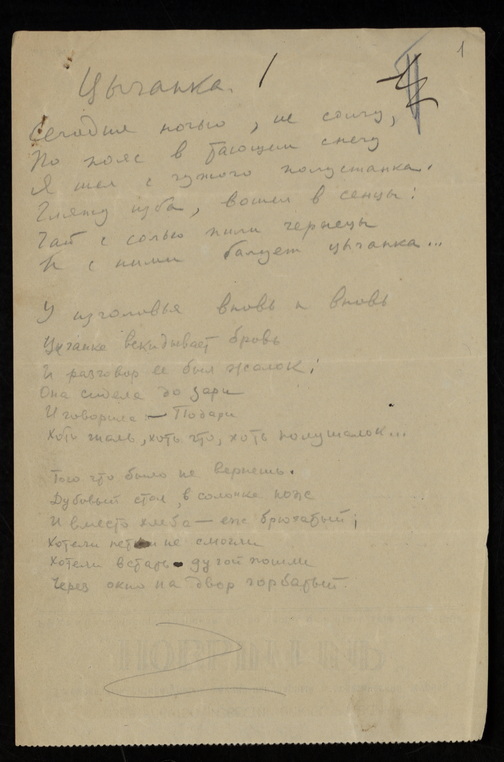 1
Цыганка.
Сегодня ночью, не солгу,
По пояс в тающем снегу
Я шел с чужого полустанка.
Гляжу изба, вошел в сенцы:
Чай с солью пили чернецы
И с ними балует цыганка...
У изголовья вновь и вновь
Цыганка вскидывает бровь
И разговор ее был жалок;
Она сидела до зари
И говорила — Подари
Хоть шаль, хоть что, хоть полушалок...
Того что было не вернешь.
Дубовый стол, в солонке нож
И вместо хлеба — еж брюхатый;
Хотели петь не смогли
Хотели встать дугой пошли
Через окно на двор горбатый.